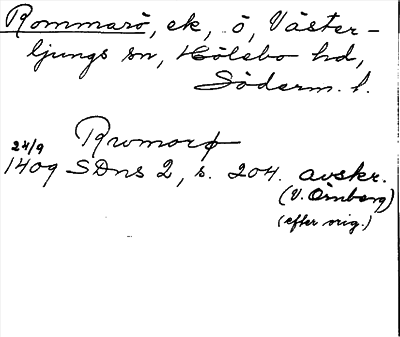 Rommarö, ek, ö, Väster-
ljungs sn, Hölebo hd,
Söderm. l.
Rwmorø
24/9
1409 SDns 2, s. 204. avskr.
(V. Örnberg)
(efter orig.)